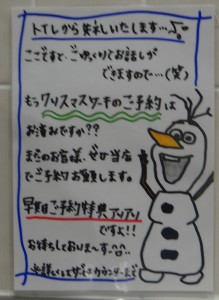 トイレから失礼いたします…♪
ここですと、ごゆっくりお話しが
できますので…(笑)
もうクリスマスケーキのご予約は
お済みですか??
まだのお客様、ぜひ当店
でご予約お願します。
早期ご予約特典アリアリ
ですよ!!
お待ちしておりま〜す